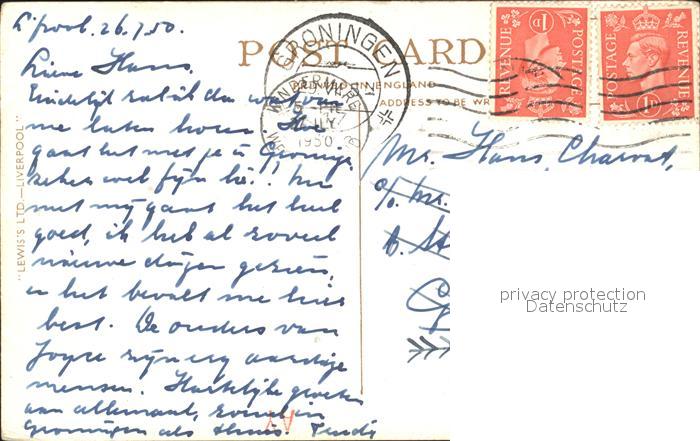 L'pool. 26.7.50.
POST CARD
Lieve Hans.
PRINTED IN ENGLAND
ADDRESS TO BE WR
Eindelijk zal ik dan wat van
me laten horen. Hoe
gaat het met je in Groningen
zeker wel fijn hè! Met
mij gaat het heel
goed, ik heb al zoveel
nieuwe dingen gezien,
en het bevalt me hier
best. De ouders van
Joyce zijn erg aardige
mensen. Hartelijke groeten
aan allemaal, zowel in
Groningen als thuis.
"LEWIS'S LTD.—LIVERPOOL"
GRONINGEN
WINDERMERE
JLY
1950
POSTAGE REVENUE
1D
POSTAGE REVENUE
1D
Mr. Hans Charvat,
c/o Mr.
privacy protection
Datenschutz